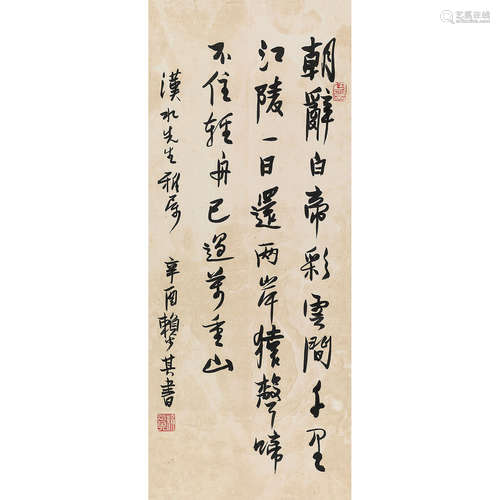 朝辭白帝彩雲間千里
江陵一日還兩岸猿聲啼
不住輕舟已過萬重山
漢水先生雅屬
辛酉賴少其書